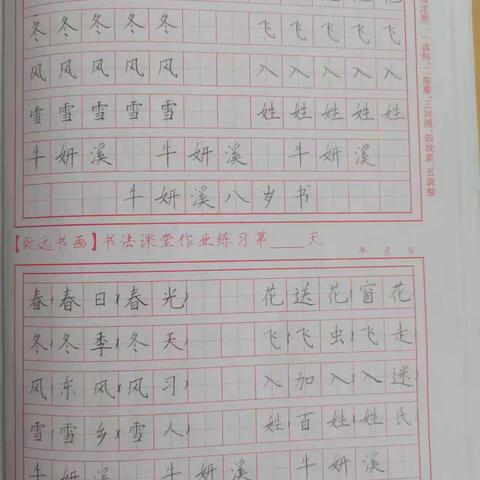 冬冬冬冬冬 飞飞飞飞飞
风风风风风 入入入入入
雪雪雪雪雪 姓姓姓姓姓
牛妍溪 牛妍溪 牛妍溪
牛妍溪八岁书
注意:一读帖、二临摹、三对照、四找差、五调整
【致远书画】书法课堂作业练习第____天 年 月 日
春(春日)(春光) 花(送花)(窗花)
冬(冬季)(冬天) 飞(飞虫)(飞走)
风(东风)(风习) 入(加入)(入迷)
雪(雪乡)(雪人) 姓(百姓)(姓氏)
牛妍溪 牛妍溪 牛妍溪